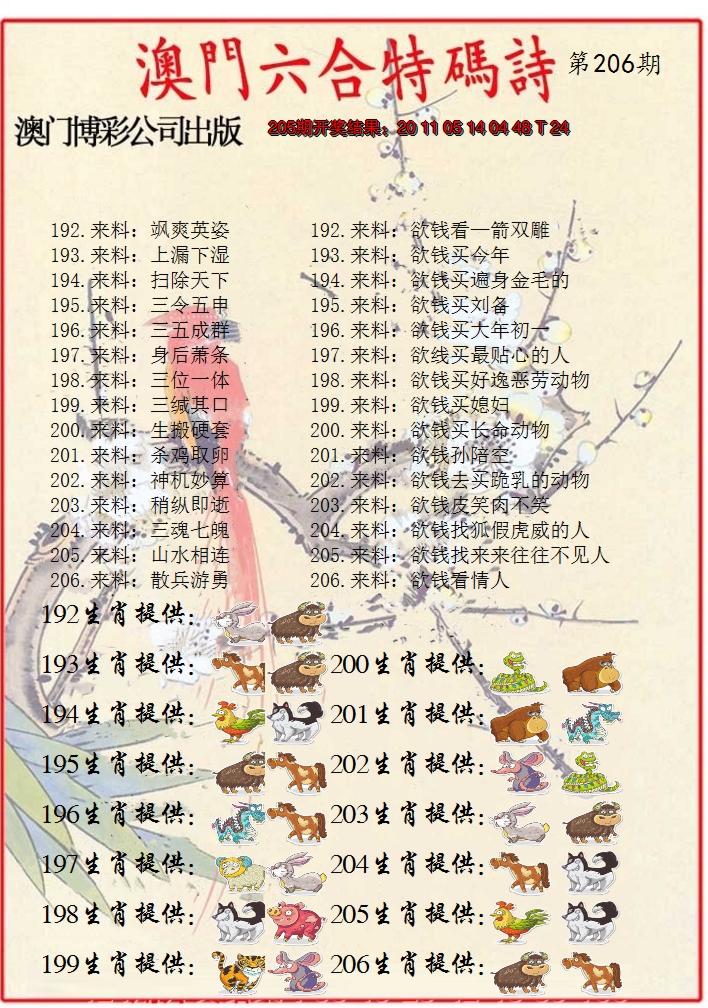 澳門六合特碼詩 第206期
澳门博彩公司出版 205期开奖结果：20 11 05 14 04 48 T 24
192.来料：飒爽英姿 192.来料：欲钱看一箭双雕
193.来料：上漏下湿 193.来料：欲钱买今年
194.来料：扫除天下 194.来料：欲钱买遍身金毛的
195.来料：三令五申 195.来料：欲钱买刘备
196.来料：三五成群 196.来料：欲钱买大年初一
197.来料：身后萧条 197.来料：欲线买最贴心的人
198.来料：三位一体 198.来料：欲钱买好逸恶劳动物
199.来料：三缄其口 199.来料：欲钱买媳妇
200.来料：生搬硬套 200.来料：欲钱买长命动物
201.来料：杀鸡取卵 201.来料：欲钱孙陪空
202.来料：神机妙算 202.来料：欲钱去买跪乳的动物
203.来料：稍纵即逝 203.来料：欲钱皮笑肉不笑
204.来料：三魂七魄 204.来料：欲钱找狐假虎威的人
205.来料：山水相连 205.来料：欲钱找来来往往不见人
206.来料：散兵游勇 206.来料：欲钱看情人
192生肖提供：
193生肖提供： 200生肖提供：
194生肖提供： 201生肖提供：
195生肖提供： 202生肖提供：
196生肖提供： 203生肖提供：
197生肖提供： 204生肖提供：
198生肖提供： 205生肖提供：
199生肖提供： 206生肖提供：